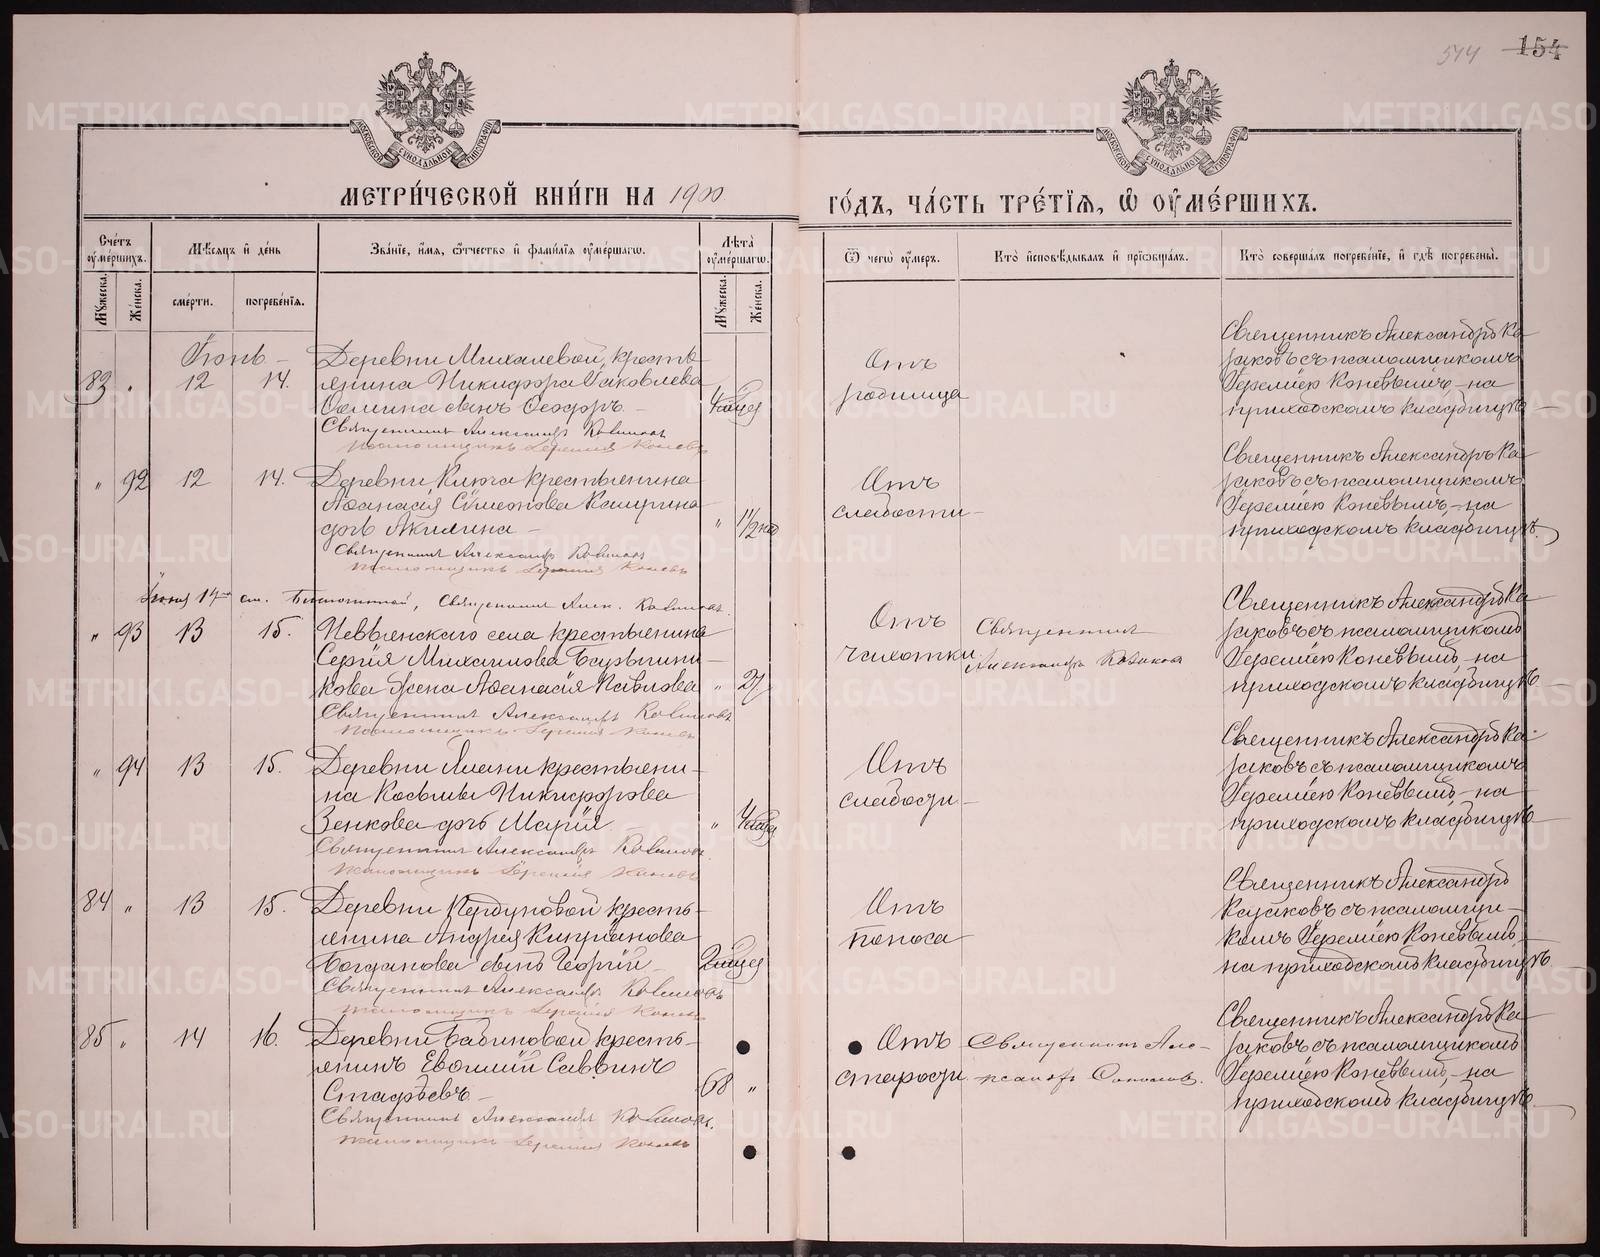 544 154
МЕТРИ́ЧЕСКОЙ КНИ́ГИ НА 1900
ГО́ДЪ, ЧА́СТЬ ТРЕ́ТЇѦ, Ѡ ОУМЕ́РШИХЪ.
Сче́тъ оуме́ршихъ.
Мѣ́сяцъ и҆ де́нь
Зва́нїе, и҆́мя, ѻ҆́тчество и҆ фами́лїя оуме́ршагѡ.
Лѣ́та оуме́ршагѡ.
Ѿ чегѡ̀ оу́меръ.
Кто̀ и҆сповѣ́дывалъ и҆ прїѻбща́лъ.
Кто̀ соверша́лъ погребе́нїе, и҆ гдѣ̀ погребены̀.
Мꙋ́жеска.
Же́нска.
сме́рти.
погребе́нїя.
Мꙋ́жеска.
Же́нска.
Іюнь –
83 „ 12 14.
Деревни Михалевой, кресть
янина Никифора Іаковлева
сынъ Ѳеодоръ –
Священникъ Александръ Казаковъ
Псаломщикъ Іеремія Коневъ
Отъ
родимца
Священникъ Александръ Ка
заковъ съ псаломщикомъ
Іереміею Коневымъ, – на
приходскомъ кладбищѣ –
„ 92 12 14.
Деревни Ключа крестьянина
Аѳанасія Сѵмеонова
дочь Акилина –
„ 1½ год
Священникъ Александръ Казаковъ
Псаломщикъ Іеремія Коневъ
Отъ
слабости –
Священникъ Александръ Ка
заковъ съ псаломщикомъ
Іереміею Коневымъ, – на
приходскомъ кладбищѣ.
Священникъ Алек. Казаковъ.
„ 93 13 15.
села крестьянина
Сергія Михаилова
кова жена Аѳанасія Павлова
„ 27
Священникъ Александръ Казаковъ
Псаломщикъ Іеремія Коневъ
Отъ
чахотки
Священникъ
Александръ Казаковъ
Священникъ Александръ Ка
заковъ съ псаломщикомъ
Іереміею Коневымъ, – на
приходскомъ кладбищѣ –
„ 94 13 15.
Деревни крестьяни –
на Косьмы Никифорова
Зенкова дочь Марія
Священникъ Александръ Казаковъ
Псаломщикъ Іеремія Коневъ
Отъ
слабости –
Священникъ Александръ Ка
заковъ съ псаломщикомъ
Іереміею Коневымъ, – на
приходскомъ кладбищѣ
84 „ 13 15.
Деревни кресть –
янина Андрея Кипріанова
Богданова сынъ Георгій
Священникъ Александръ Казаковъ
Псаломщикъ Іеремія Коневъ
Отъ
поноса
Священникъ Александръ
Казаковъ съ псаломщи –
комъ Іереміею Коневымъ,
на приходскомъ кладбищѣ
85 „ 14 16.
Деревни Бабиновой кресть –
янинъ Евѳимій Саввинъ
–
68 „
Священникъ Александръ Казаковъ.
Псаломщикъ Іеремія Коневъ
Отъ
старости
Священникъ Але –
ксандръ
Священникъ Александръ Ка
заковъ съ псаломщикомъ
Іереміею Коневымъ, – на
приходскомъ кладбищѣ.
METRIKI.GASO-URAL.RU